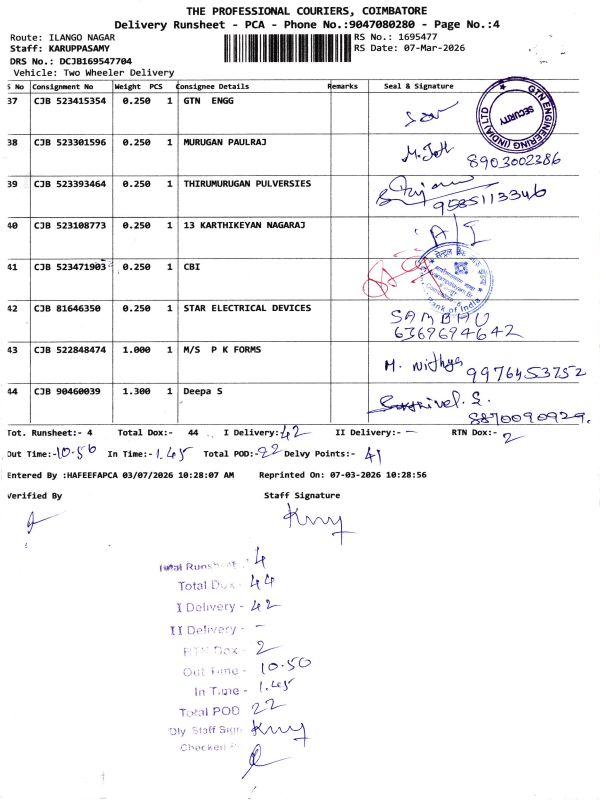 THE PROFESSIONAL COURIERS, COIMBATORE
Delivery Runsheet - PCA - Phone No.:9047080280 - Page No.:4
Route: ILANGO NAGAR RS No.: 1695477
Staff: KARUPPASAMY RS Date: 07-Mar-2026
DRS No.: DCJB169547704
Vehicle: Two Wheeler Delivery
S No Consignment No Weight PCS Consignee Details Remarks Seal & Signature
37 CJB 523415354 0.250 1 GTN ENGG
GTN ENGINEERING (INDIA) LTD SECURITY
38 CJB 523301596 0.250 1 MURUGAN PAULRAJ
8903002386
39 CJB 523393464 0.250 1 THIRUMURUGAN PULVERSIES
9585113346
40 CJB 523108773 0.250 1 13 KARTHIKEYAN NAGARAJ
A/I
41 CJB 523471903 0.250 1 CBI
Bank of India
42 CJB 81646350 0.250 1 STAR ELECTRICAL DEVICES
SAMBAU
6369694642
43 CJB 522848474 1.000 1 M/S P K FORMS M. Nithya 9976453752
44 CJB 90460039 1.300 1 Deepa S
8870090929.
Tot. Runsheet:- 4 Total Dox:- 44 I Delivery:- 42 II Delivery:- - RTN Dox:- 2
Out Time:- 10.50 In Time:- 1.45 Total POD:- 22 Delvy Points:- 41
Entered By :HAFEEFAPCA 03/07/2026 10:28:07 AM Reprinted On: 07-03-2026 10:28:56
Verified By Staff Signature
Total Runsheet - 4
Total Dox - 44
I Delivery - 42
II Delivery - -
RTN Dox - 2
Out Time - 10.50
In Time - 1.45
Total POD 22
Dly. Staff Sign
Checked